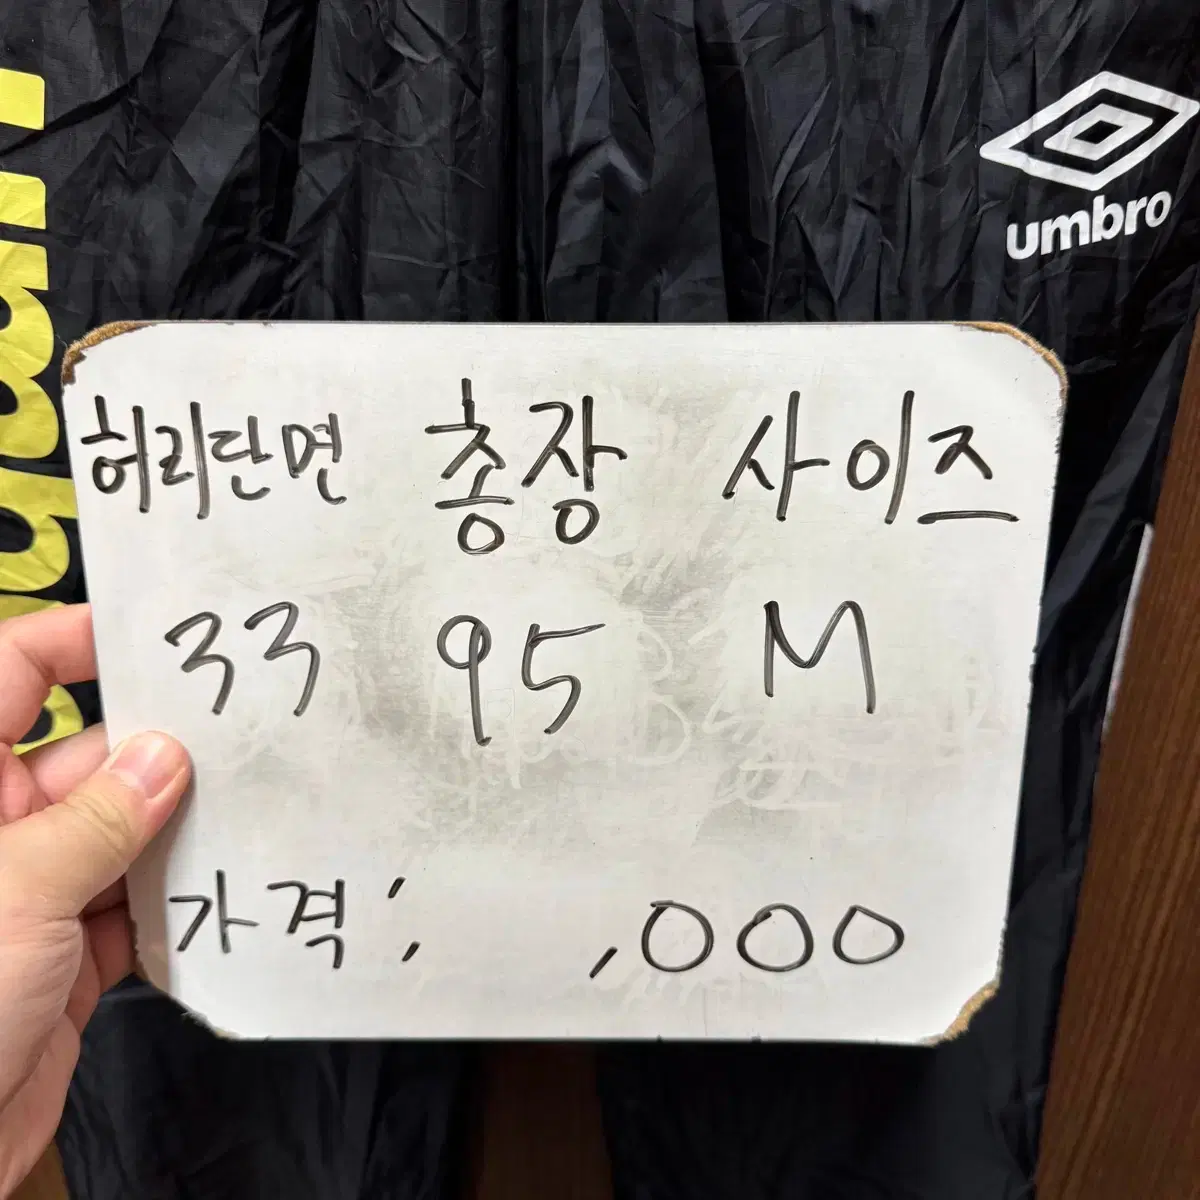 umbro
허리단면 총장 사이즈
33 95 M
가격: ,000